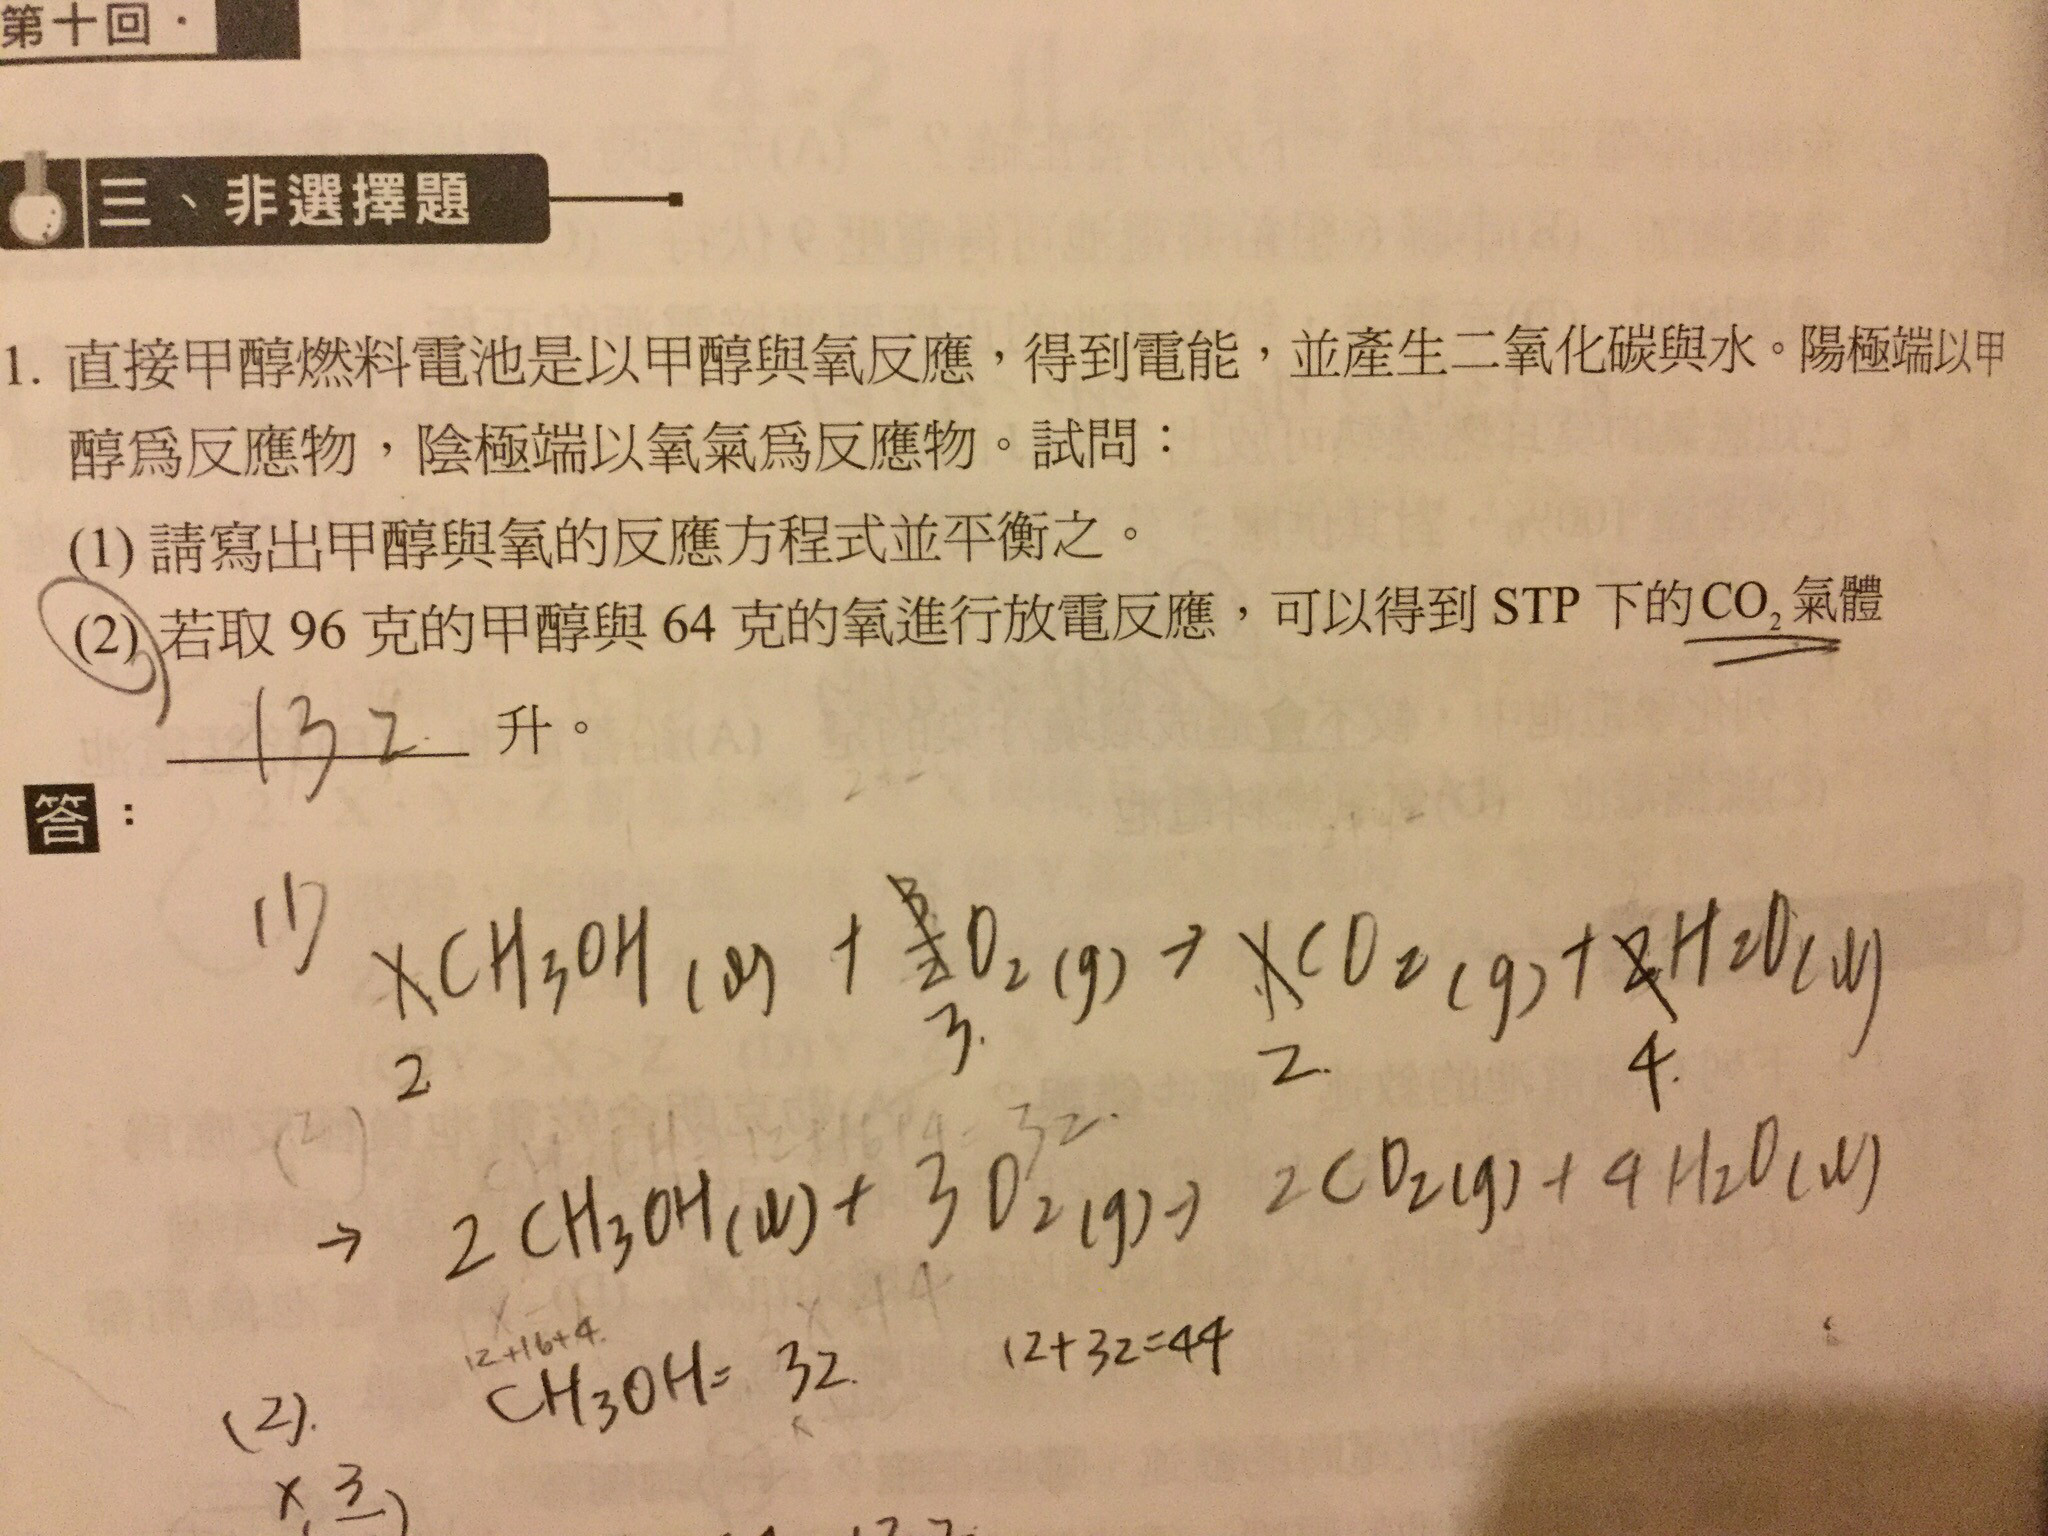 第十回．
三、非選擇題
1. 直接甲醇燃料電池是以甲醇與氧反應，得到電能，並產生二氧化碳與水。陽極端以甲
醇為反應物，陰極端以氧氣為反應物。試問：
(1) 請寫出甲醇與氧的反應方程式並平衡之。
(2) 若取 96 克的甲醇與 64 克的氧進行放電反應，可以得到 STP 下的 CO₂ 氣體
132 升。
答：
(1) CH3OH(l) + O2(g) → CO2(g) + H2O(l)
2 3. 2. 4.
(2) 32.
→ 2CH3OH(l) + 3O2(g) → 2CO2(g) + 4H2O(l)
x 44
12+16+4.
CH3OH = 32. 12+32=44
(2).
x 3